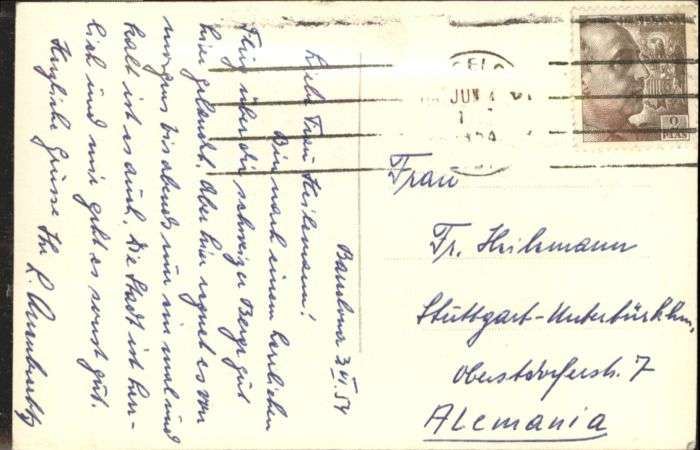 Barcelona 3.VI.54
Liebe Frau Heilemann!
Bin nach einem herrlichen
Flug über die schweizer Berge gut
hier gelandet. Aber hier regnet es von
morgens bis abends um im und
kalt ist es auch. Die Stadt ist häss-
lich und mir geht es sonst gut.
Herzliche Grüsse Ihr
Frau
Fr. Heilemann
Stuttgart-Untertürkheim,
Oberstdorferstr. 7
Alemania
JUN
1954
2
PTAS